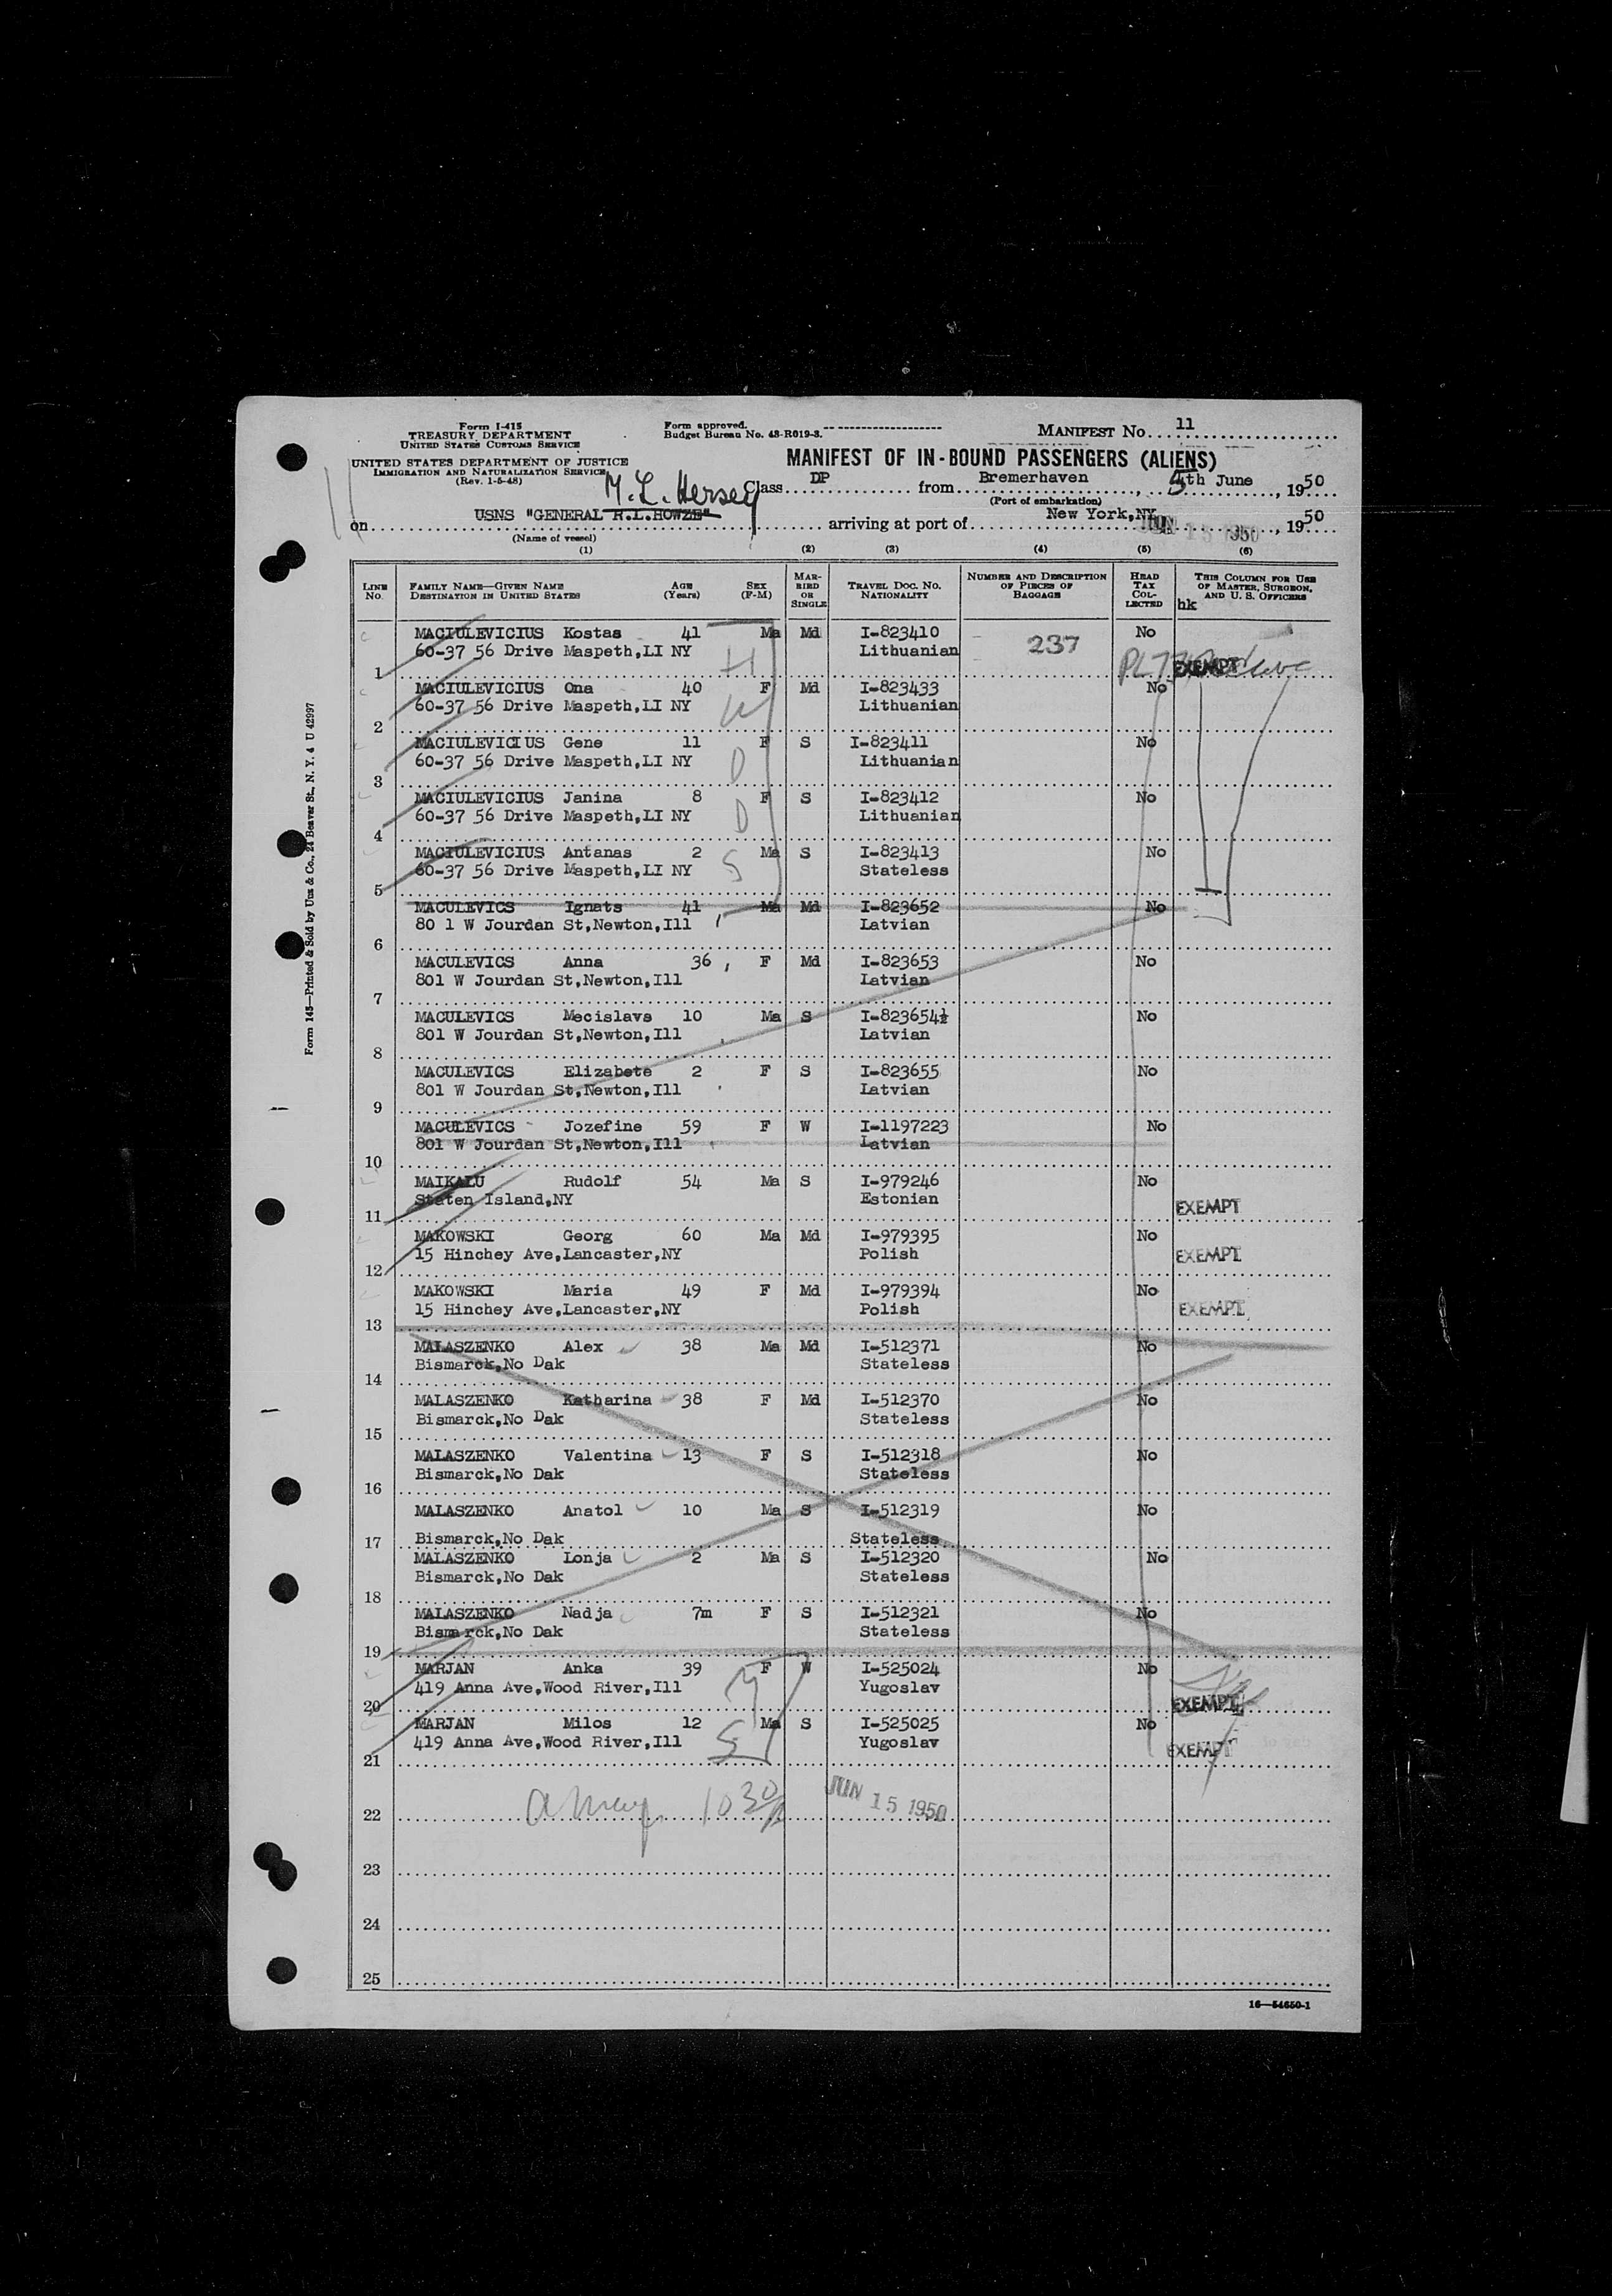 Form I-415
TREASURY DEPARTMENT
UNITED STATES CUSTOMS SERVICE
UNITED STATES DEPARTMENT OF JUSTICE
IMMIGRATION AND NATURALIZATION SERVICE
(Rev. 1-5-48)
Form approved.
Budget Bureau No. 43-R019-3.
MANIFEST No. 11
MANIFEST OF IN-BOUND PASSENGERS (ALIENS)
M. L. Hersey
Class DP from Bremerhaven, 5th June, 1950
(Port of embarkation)
on USNS "GENERAL R.L.HOWZE" arriving at port of New York,NY JUN 15 1950, 1950
(Name of vessel)
(1) (2) (3) (4) (5) (6)
LINE No. FAMILY NAME—GIVEN NAME DESTINATION IN UNITED STATES AGE (Years) SEX (F-M) MARRIED OR SINGLE TRAVEL DOC. NO. NATIONALITY NUMBER AND DESCRIPTION OF PIECES OF BAGGAGE HEAD TAX COLLECTED THIS COLUMN FOR USE OF MASTER, SURGEON, AND U. S. OFFICERS
hk
MACIULEVICIUS Kostas 41 Ma Md I-823410 237 No
60-37 56 Drive Maspeth,LI NY H Lithuanian EXEMPT
1
MACIULEVICIUS Ona 40 F Md I-823433 No
60-37 56 Drive Maspeth,LI NY W Lithuanian
2
MACIULEVICIUS Gene 11 F S I-823411 No
60-37 56 Drive Maspeth,LI NY D Lithuanian
3
MACIULEVICIUS Janina 8 F S I-823412 No
60-37 56 Drive Maspeth,LI NY D Lithuanian
4
MACIULEVICIUS Antanas 2 Ma S I-823413 No
60-37 56 Drive Maspeth,LI NY S Stateless
5
MACULEVICS Ignats 41 Ma Md I-823652 No
80 1 W Jourdan St,Newton,Ill Latvian
6
MACULEVICS Anna 36 F Md I-823653 No
801 W Jourdan St,Newton,Ill Latvian
7
MACULEVICS Mecislavs 10 Ma S I-823654½ No
801 W Jourdan St,Newton,Ill Latvian
8
MACULEVICS Elizabete 2 F S I-823655 No
801 W Jourdan St,Newton,Ill Latvian
9
MACULEVICS Jozefine 59 F W I-1197223 No
801 W Jourdan St,Newton,Ill Latvian
10
MAIKALU Rudolf 54 Ma S I-979246 No
Staten Island,NY Estonian EXEMPT
11
MAKOWSKI Georg 60 Ma Md I-979395 No
15 Hinchey Ave,Lancaster,NY Polish EXEMPT
12
MAKOWSKI Maria 49 F Md I-979394 No
15 Hinchey Ave,Lancaster,NY Polish EXEMPT
13
MALASZENKO Alex 38 Ma Md I-512371 No
Bismarck,No Dak Stateless
14
MALASZENKO Katharina 38 F Md I-512370 No
Bismarck,No Dak Stateless
15
MALASZENKO Valentina 13 F S I-512318 No
Bismarck,No Dak Stateless
16
MALASZENKO Anatol 10 Ma S I-512319 No
Bismarck,No Dak Stateless
17
MALASZENKO Lonja 2 Ma S I-512320 No
Bismarck,No Dak Stateless
18
MALASZENKO Nadja 7m F S I-512321 No
Bismarck,No Dak Stateless
19
MARJAN Anka 39 F W I-525024 No
419 Anna Ave,Wood River,Ill M Yugoslav EXEMPT
20
MARJAN Milos 12 Ma S I-525025 No
419 Anna Ave,Wood River,Ill S Yugoslav EXEMPT
21
1030 JUN 15 1950
22
23
24
25
16—54650-1
Form 145—Printed & Sold by Unz & Co., 24 Beaver St., N. Y. 4 U 42997